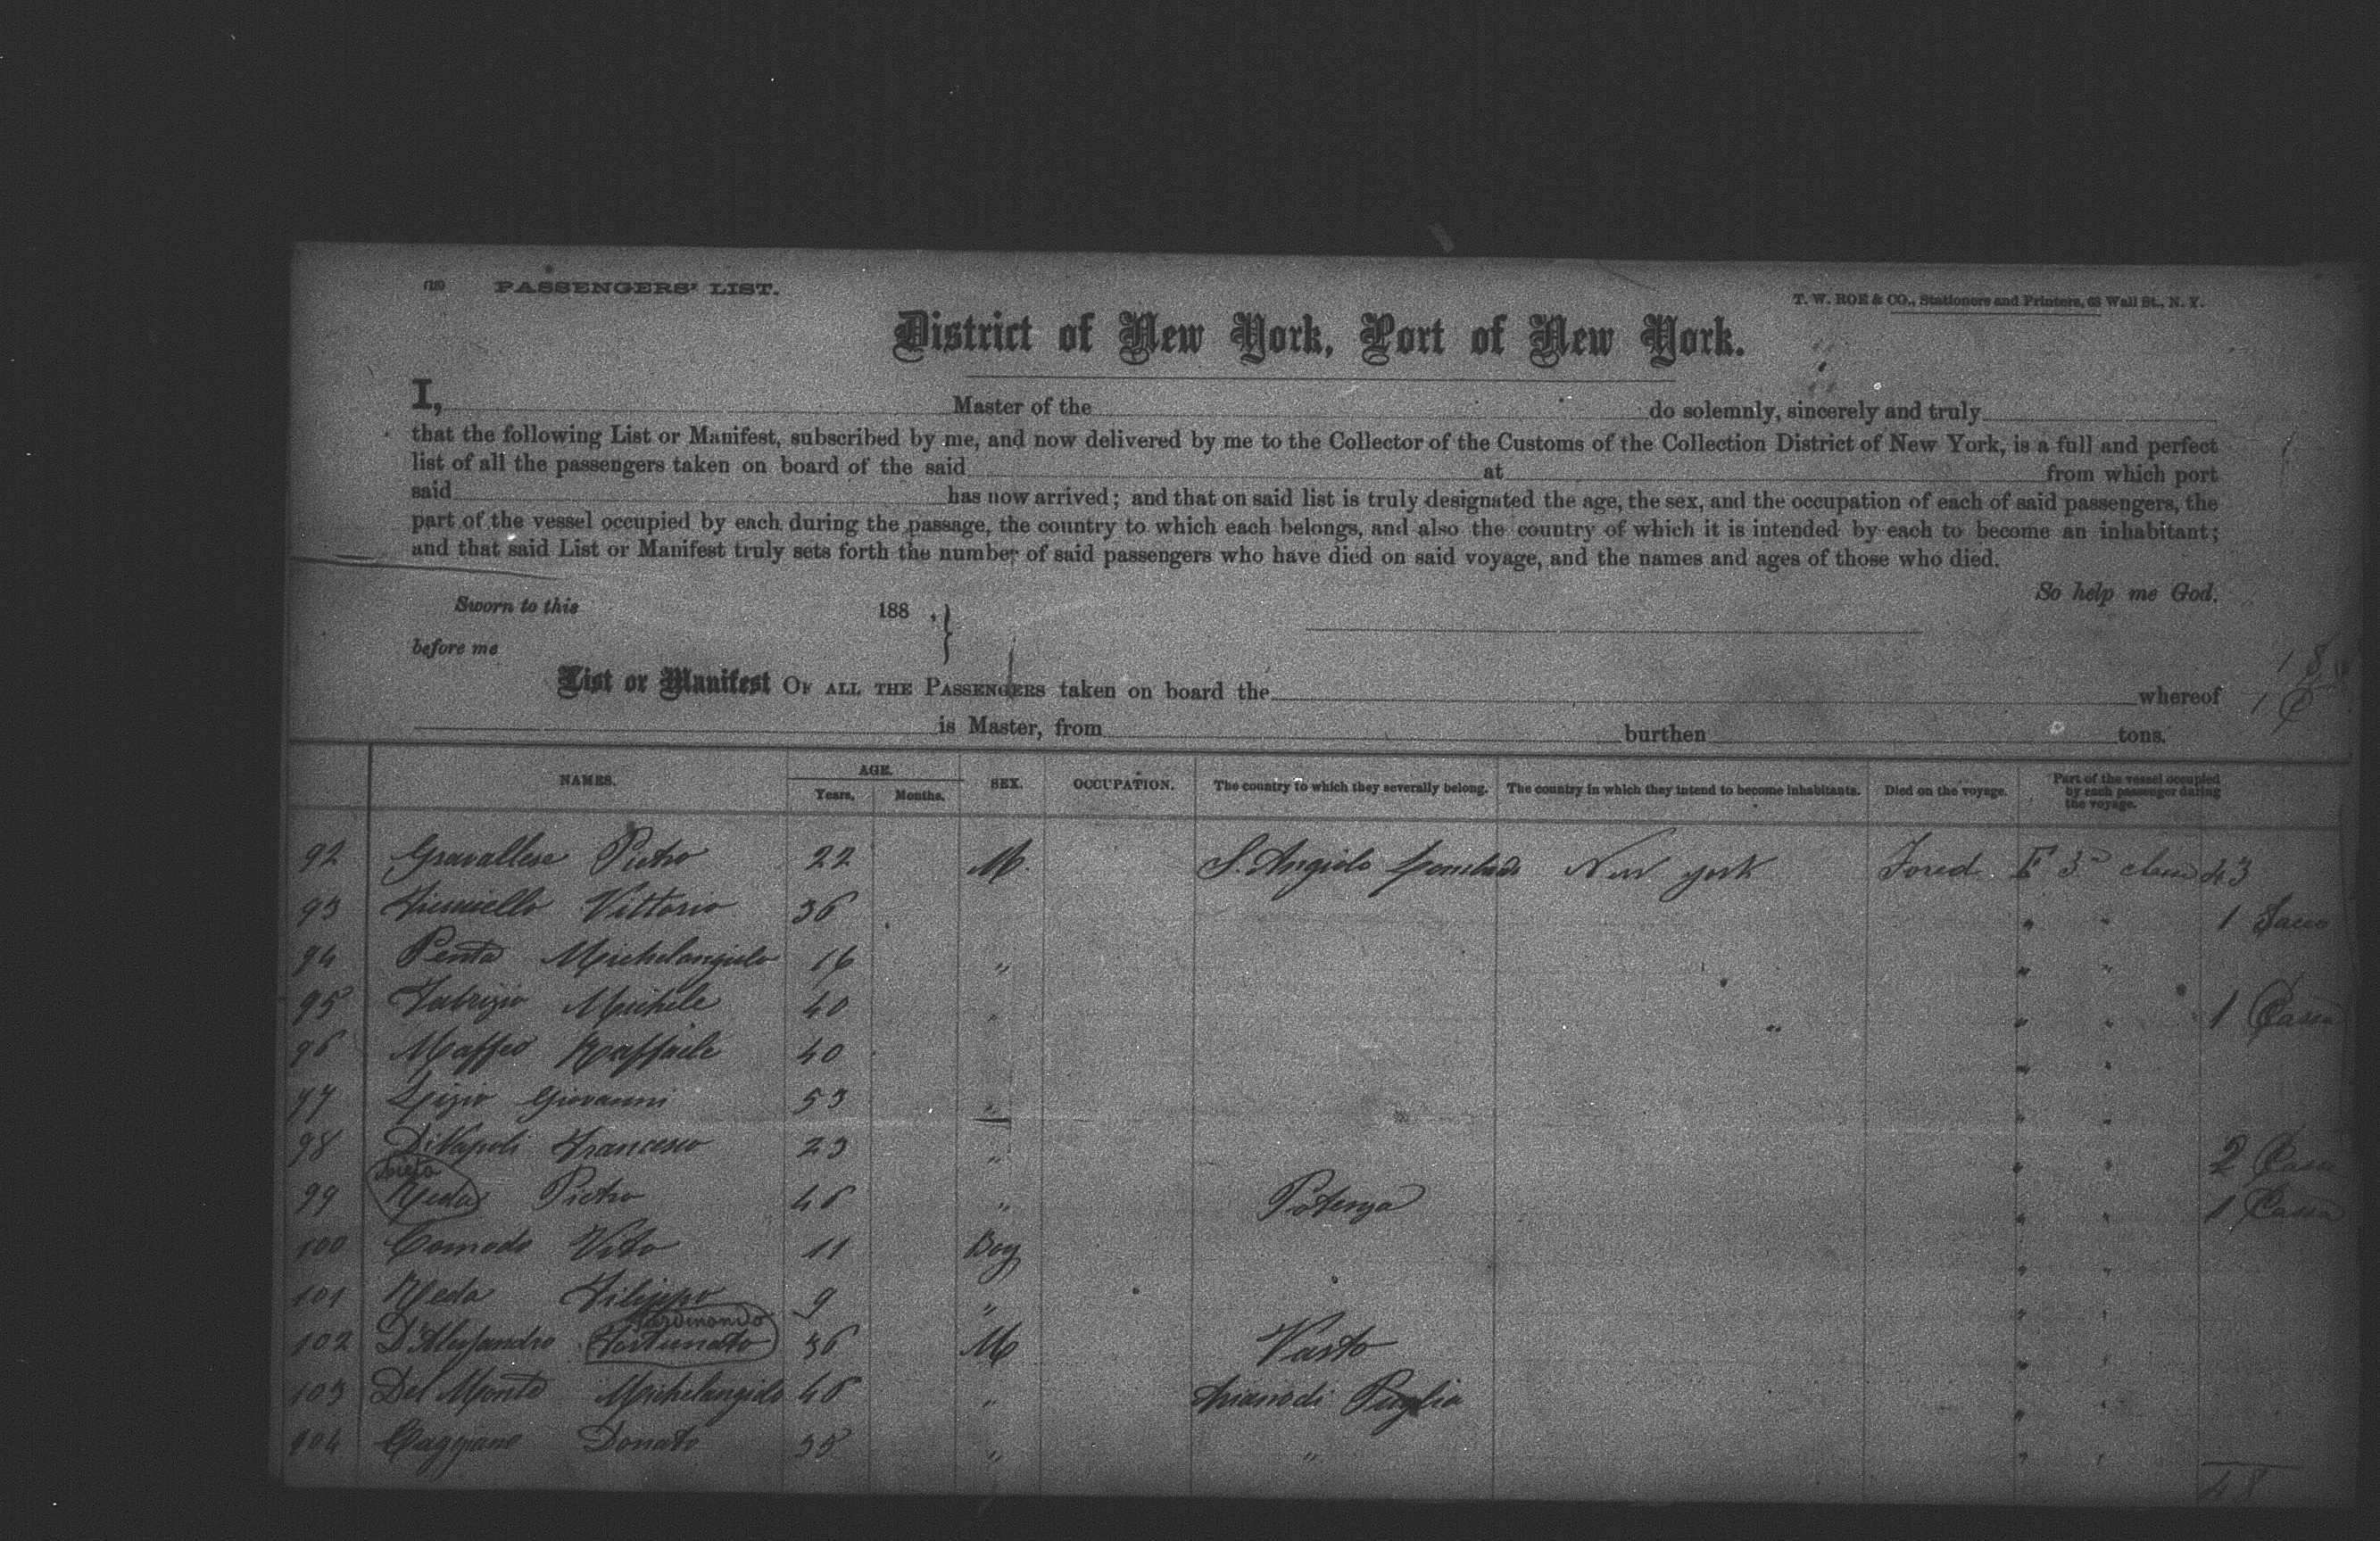 (18) PASSENGERS' LIST.
T. W. ROE & CO., Stationers and Printers, 68 Wall St., N. Y.
District of New York, Port of New York.
I, Master of the do solemnly, sincerely and truly
that the following List or Manifest, subscribed by me, and now delivered by me to the Collector of the Customs of the Collection District of New York, is a full and perfect
list of all the passengers taken on board of the said at from which port
said has now arrived; and that on said list is truly designated the age, the sex, and the occupation of each of said passengers, the
part of the vessel occupied by each during the passage, the country to which each belongs, and also the country of which it is intended by each to become an inhabitant;
and that said List or Manifest truly sets forth the number of said passengers who have died on said voyage, and the names and ages of those who died.
So help me God.
Sworn to this 188 ,
before me
List or Manifest OF ALL THE PASSENGERS taken on board the whereof
is Master, from burthen tons.
NAMES. AGE. Years. Months. SEX. OCCUPATION. The country to which they severally belong. The country in which they intend to become inhabitants. Died on the voyage. Part of the vessel occupied by each passenger during the voyage.
92 Gravallese Pietro 22 M. S. Angiolo New York 3ª 43
93 Vittorio 36 " " 1 Sacco
94 Penta Michelangiolo 16 " " "
95 Fabrizio Michele 40 " " " " 1 Cassa
96 Maffeo Raffaele 40 " "
97 Giovanni 53 " " "
98 Di Napoli Francesco 23 " " " 2 Casse
99 Reda Pietro 46 " Potenza " " 1 Cassa
100 Comodo Vito 11 Boy " "
101 Reda Filippo 9 " " "
Ferdinando
102 D'Alessandro Fortunato 36 M Vasto " "
103 Del Monte Michelangiolo 46 " Ariano di Puglia " "
104 Donato 35 " " " "
48